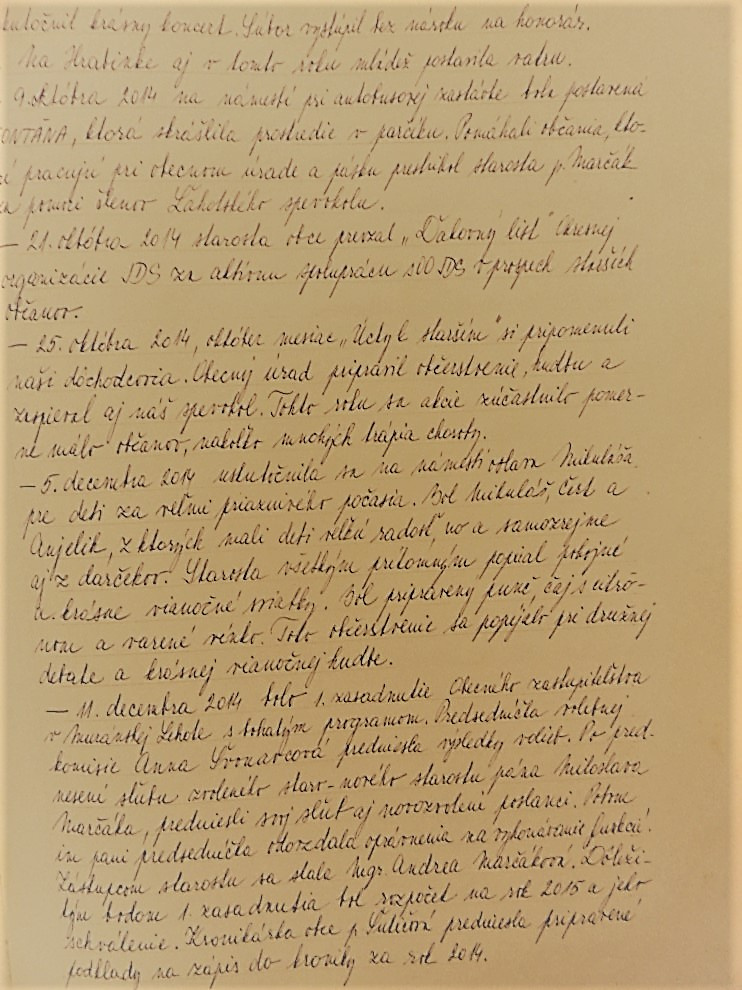 utočnil krásny koncert. Súbor vystúpil bez nároku na honorár.
Na Hrabinke aj v tomto roku mládež postavila vatru.
9. októbra 2014 na námestí pri autobusovej zastávke bola postavená
ONTÁNA, ktorá skrášlila prostredie v parčíku. Pomáhali občania, kto-
í pracujú pri obecnom úrade a pásku prestrihol starosta p. Marčák
za pomoci členov Lehotského spevokolu.
— 21. októbra 2014 starosta obce prevzal „Ďakovný list" Okresnej
organizácie JDS za aktívnu spoluprácu s OO JDS v prospech starších
občanov.
— 25. októbra 2014, október mesiac „Úcty k starším" si pripomenuli
naši dôchodcovia. Obecný úrad pripravil občerstvenie, hudbu a
zaspieval aj náš spevokol. Tohto roku sa akcie zúčastnilo pomer-
ne málo občanov, nakoľko mnohých trápia choroby.
— 5. decembra 2014 uskutočnila sa na námestí oslava Mikuláša
pre deti za veľmi priaznivého počasia. Bol Mikuláš, čert a
Anjelik, z ktorých mali deti veľkú radosť, no a samozrejme
aj z darčekov. Starosta všetkým prítomným poprial pokojné
a krásne vianočné sviatky. Bol pripravený punč, čaj s citró-
nom a varené vínko. Toto občerstvenie sa popíjalo pri družnej
debate a krásnej vianočnej hudbe.
— 11. decembra 2014 bolo 1. zasadnutie Obecného zastupiteľstva
v Muránskej Lehote s bohatým programom. Predsedníčka volebnej
komisie Anna Švonavcová predniesla výsledky volieb. Po pred-
nesení sľubu zvoleného staro-nového starostu pána Miloslava
Marčáka, predniesli svoj sľub aj novozvolení poslanci. Potom
im pani predsedníčka odovzdala oprávnenia na vykonávanie funkcií.
Zástupcom starostu sa stala Mgr. Andrea Marčáková. Dôleži-
tým bodom 1. zasadnutia bol rozpočet na rok 2015 a jeho
schválenie. Kronikárka obce p. predniesla pripravené
podklady na zápis do kroniky za rok 2014.